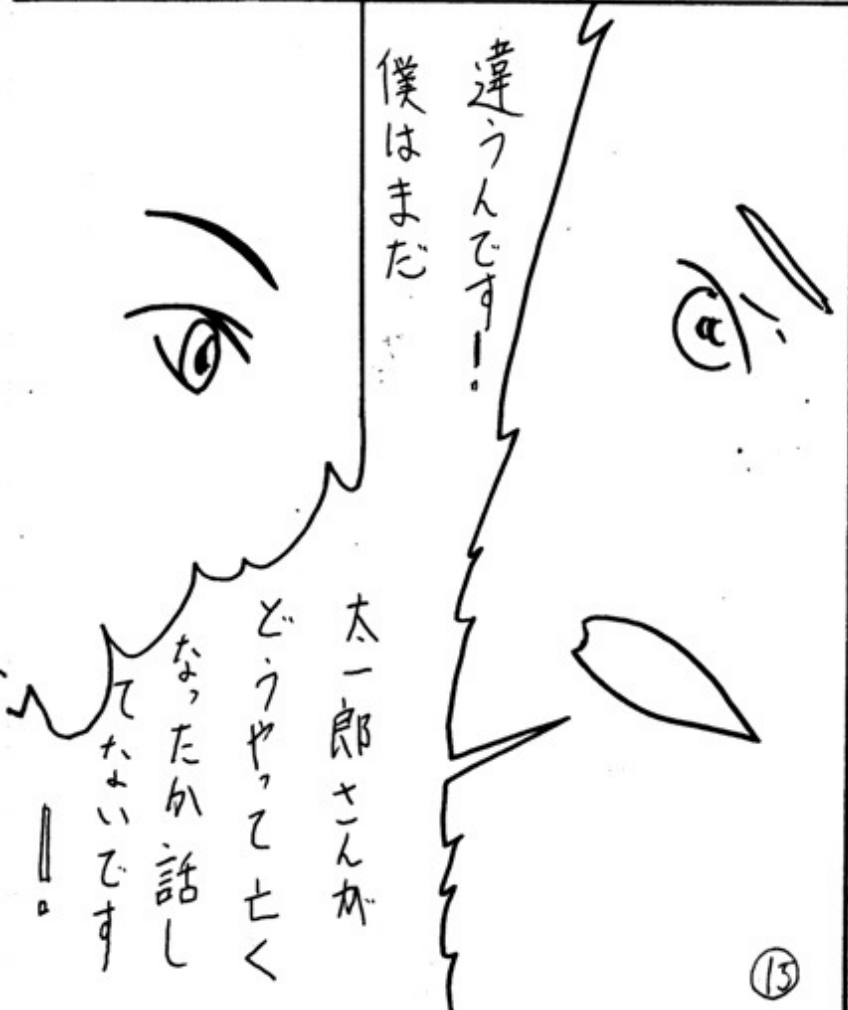 違うんです！
僕はまだ
太一郎さんが
どうやって亡く
なったか話し
てないです
！
⑬